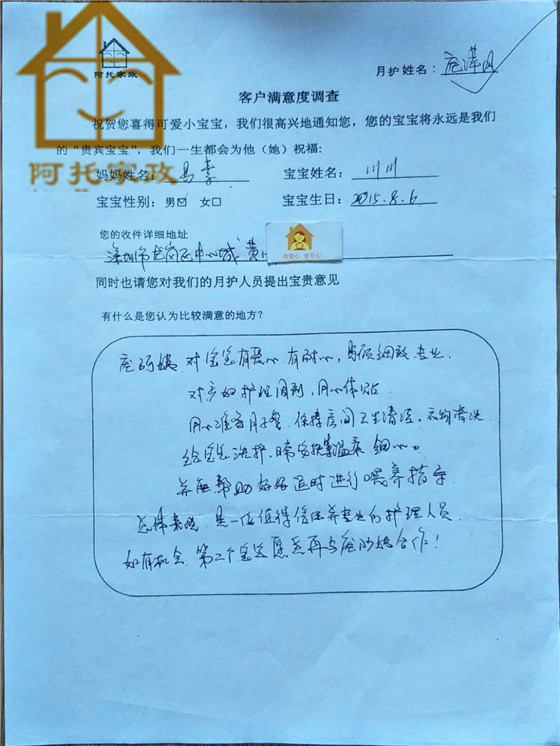 阿托家政
阿托家政
月护姓名：
客户满意度调查
祝贺您喜得可爱小宝宝，我们很高兴地通知您，您的宝宝将永远是我们
的“贵宾宝宝”，我们一生都会为他（她）祝福：
妈妈姓名： 宝宝姓名：川川
宝宝性别： 男☑ 女□ 宝宝生日：2015.8.6
您的收件详细地址
深圳市龙岗区中心城
同时也请您对我们的月护人员提出宝贵意见
有什么是您认为比较满意的地方？
对宝宝有爱心 有耐心， 细致 专业.
对产妇护理周到，用心体贴
用心准备月子餐. 保持房间卫生清洁，衣物清洗
给宝宝洗护， 细心。
并能帮助 适时进行喂养指导
是一位值得信任并专业的护理人员
如有机会. 第二个宝宝愿意再与 合作！